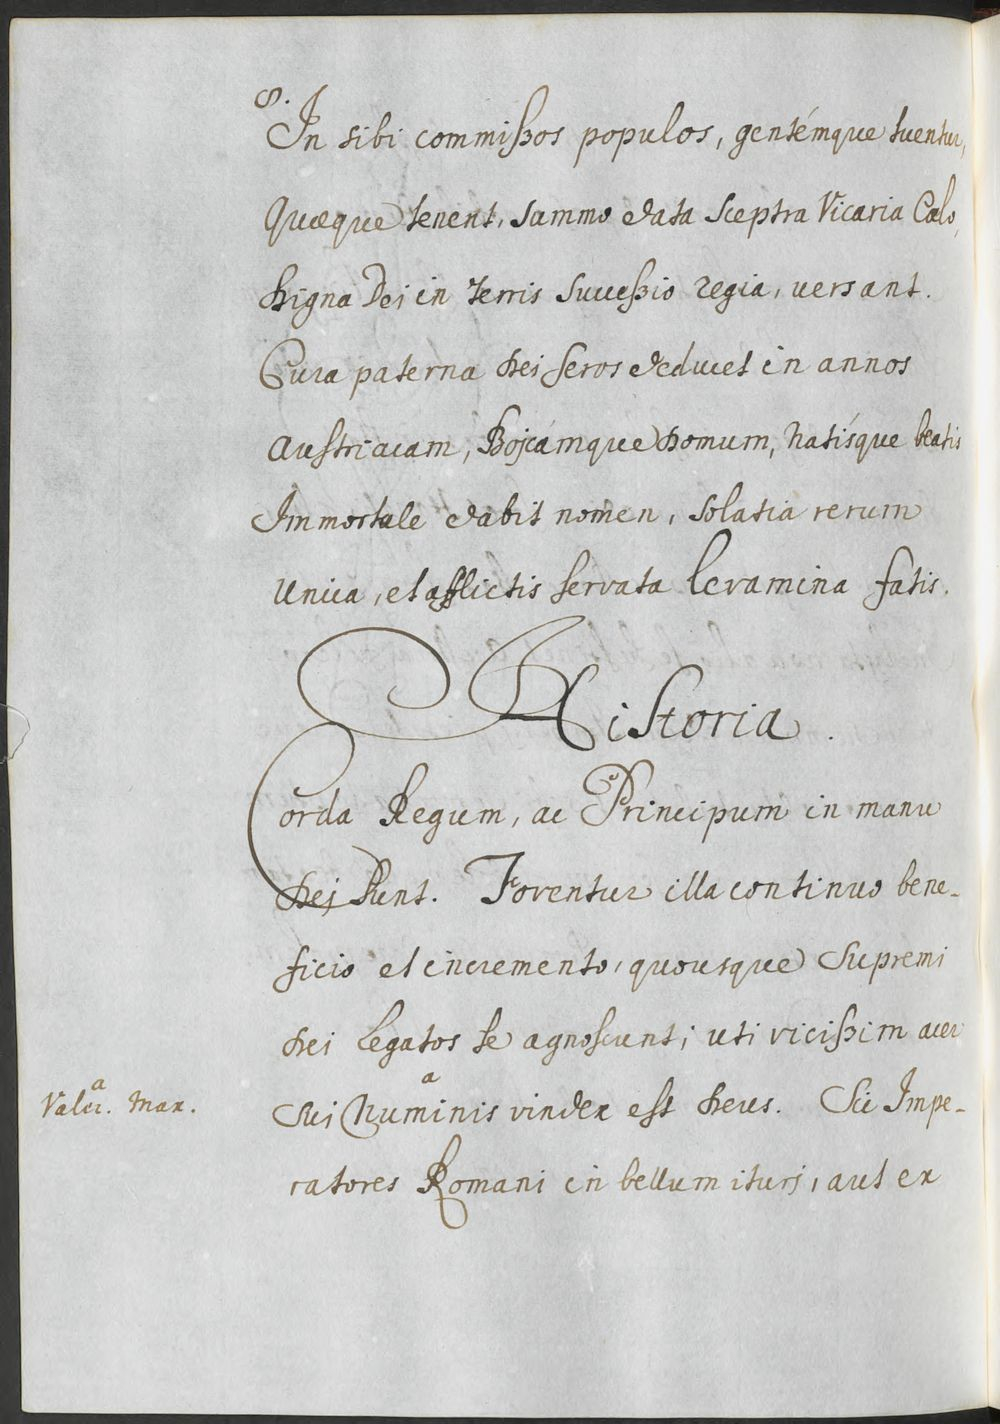 8.
In sibi commißos populos, gentémque tuentur,
Quæque tenent, summo data Sceptra Vicaria Cœlo,
Signa Dei in terris Sucteßio regia, versant.
Cura paterna Dei seros deducet in annos
Austriacam, Bojcámque Domum, Natísque beatis
Immortale dabit nomen, solatia rerum
Unica, et afflictis servata levamina fatis.
Historia.
Corda Regum, ac Principum in manu
Dei sunt. Foventur illa continuo bene-
ficio et incremento, quousque Supremi
Dei Legatos se agnoscunt; uti vicißim acer
Valer.ᵃ Max.
Sui Numinisᵃ vindex est Deus. Sic Impe-
ratores Romani in bellum ituri, aut ex